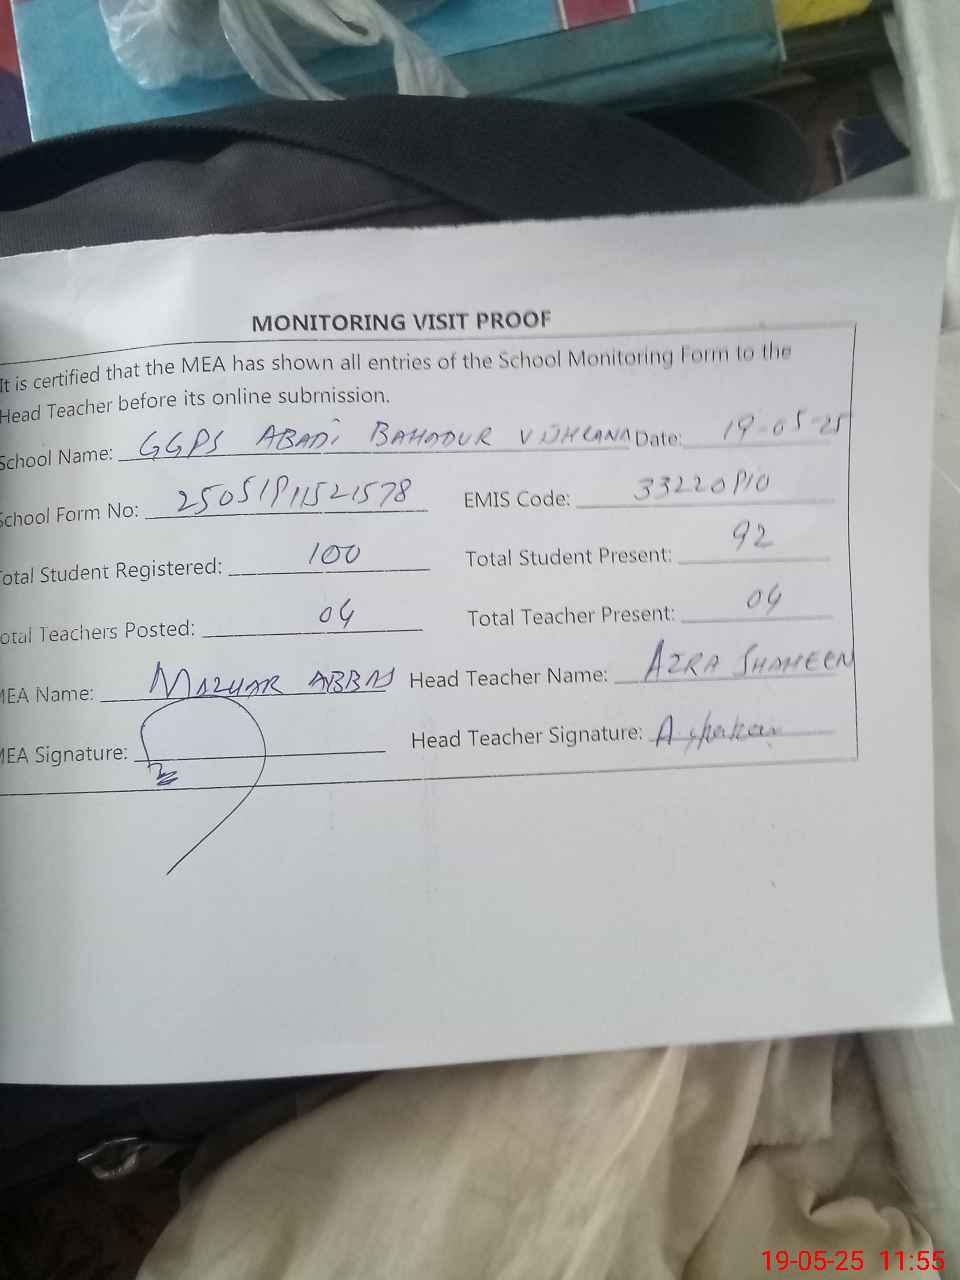 MONITORING VISIT PROOF
It is certified that the MEA has shown all entries of the School Monitoring Form to the
Head Teacher before its online submission.
School Name: GGPS ABADI BAHADUR VIJHLANA Date: 19-05-25
School Form No: EMIS Code:
Total Student Registered: 100 Total Student Present: 92
Total Teachers Posted: 04 Total Teacher Present: 04
MEA Name: MAZHAR ABBAS Head Teacher Name: AZRA SHAHEEN
MEA Signature: Head Teacher Signature:
19-05-25 11:55